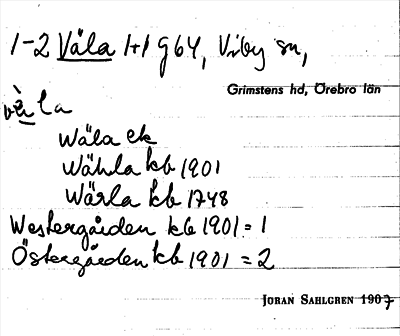 1-2 Väla 1+1 g64, Viby sn,
Grimstens hd, Örebro län
vè̱la
Wäla ek
Wähla kb 1901
Wärla kb 1748
Westergården kb 1901 = 1
Östergården kb 1901 = 2
JORAN SAHLGREN 1907